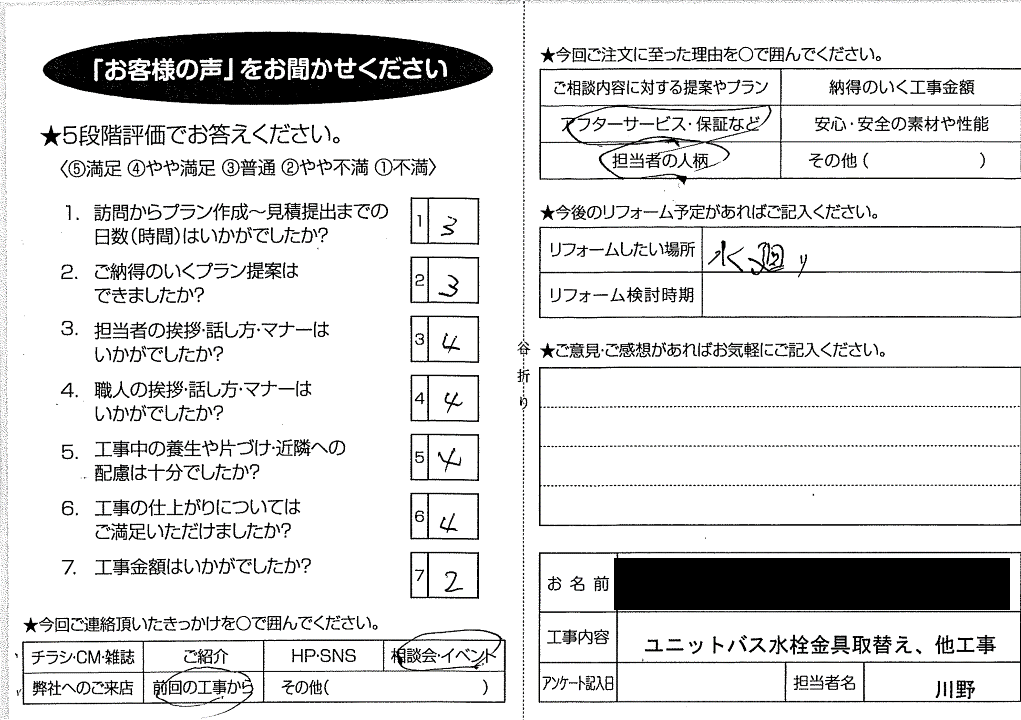 「お客様の声」をお聞かせください
★5段階評価でお答えください。
〈⑤満足 ④やや満足 ③普通 ②やや不満 ①不満〉
1. 訪問からプラン作成～見積提出までの
日数(時間)はいかがでしたか?
1 3
2. ご納得のいくプラン提案は
できましたか?
2 3
3. 担当者の挨拶・話し方・マナーは
いかがでしたか?
3 4
4. 職人の挨拶・話し方・マナーは
いかがでしたか?
4 4
5. 工事中の養生や片づけ・近隣への
配慮は十分でしたか?
5 4
6. 工事の仕上がりについては
ご満足いただけましたか?
6 4
7. 工事金額はいかがでしたか?
7 2
★今回ご連絡頂いたきっかけを○で囲んでください。
チラシ・CM・雑誌 ご紹介 HP・SNS 相談会・イベント
弊社へのご来店 前回の工事から その他( )
谷折り
★今回ご注文に至った理由を○で囲んでください。
ご相談内容に対する提案やプラン 納得のいく工事金額
アフターサービス・保証など 安心・安全の素材や性能
担当者の人柄 その他( )
★今後のリフォーム予定があればご記入ください。
リフォームしたい場所 水廻り
リフォーム検討時期
★ご意見・ご感想があればお気軽にご記入ください。
お名前
工事内容 ユニットバス水栓金具取替え、他工事
アンケート記入日 担当者名 川野